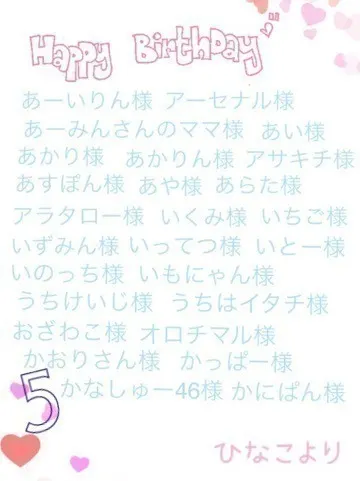 Happy Birthday
あーいりん様 アーセナル様
あーみんさんのママ様 あい様
あかり様 あかりん様 アサキチ様
あすぽん様 あや様 あらた様
アラタロー様 いくみ様 いちご様
いずみん様 いってつ様 いとー様
いのっち様 いもにゃん様
うちけいじ様 うちはイタチ様
おざわこ様 オロチマル様
かおりさん様 かっぱー様
5 かなしゅー46様 かにぱん様
ひなこより